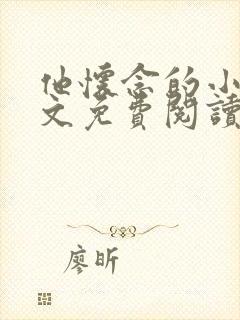 他懷念的小
文免費閱讀
廖昕